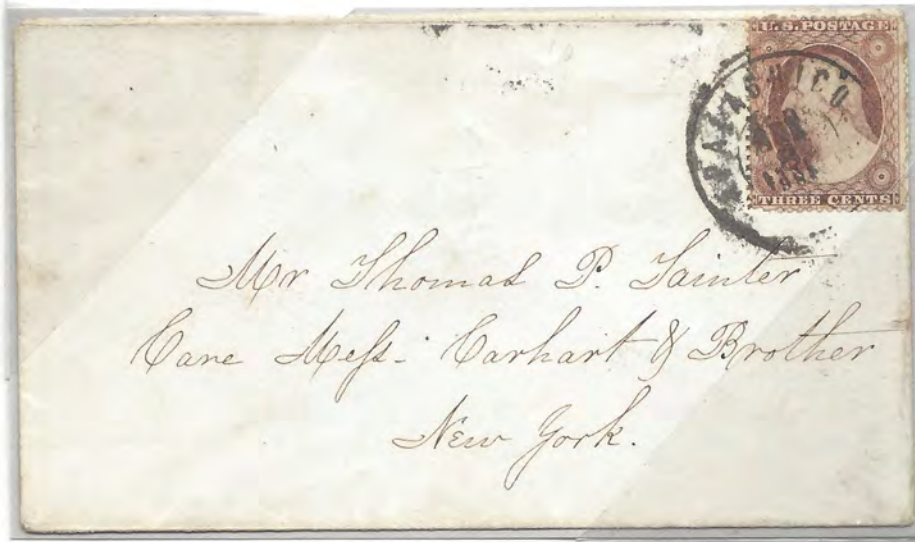 U.S. POSTAGE
THREE CENTS
Mr Thomas P. Sainter
Care Mess. Carhart & Brother
New York.